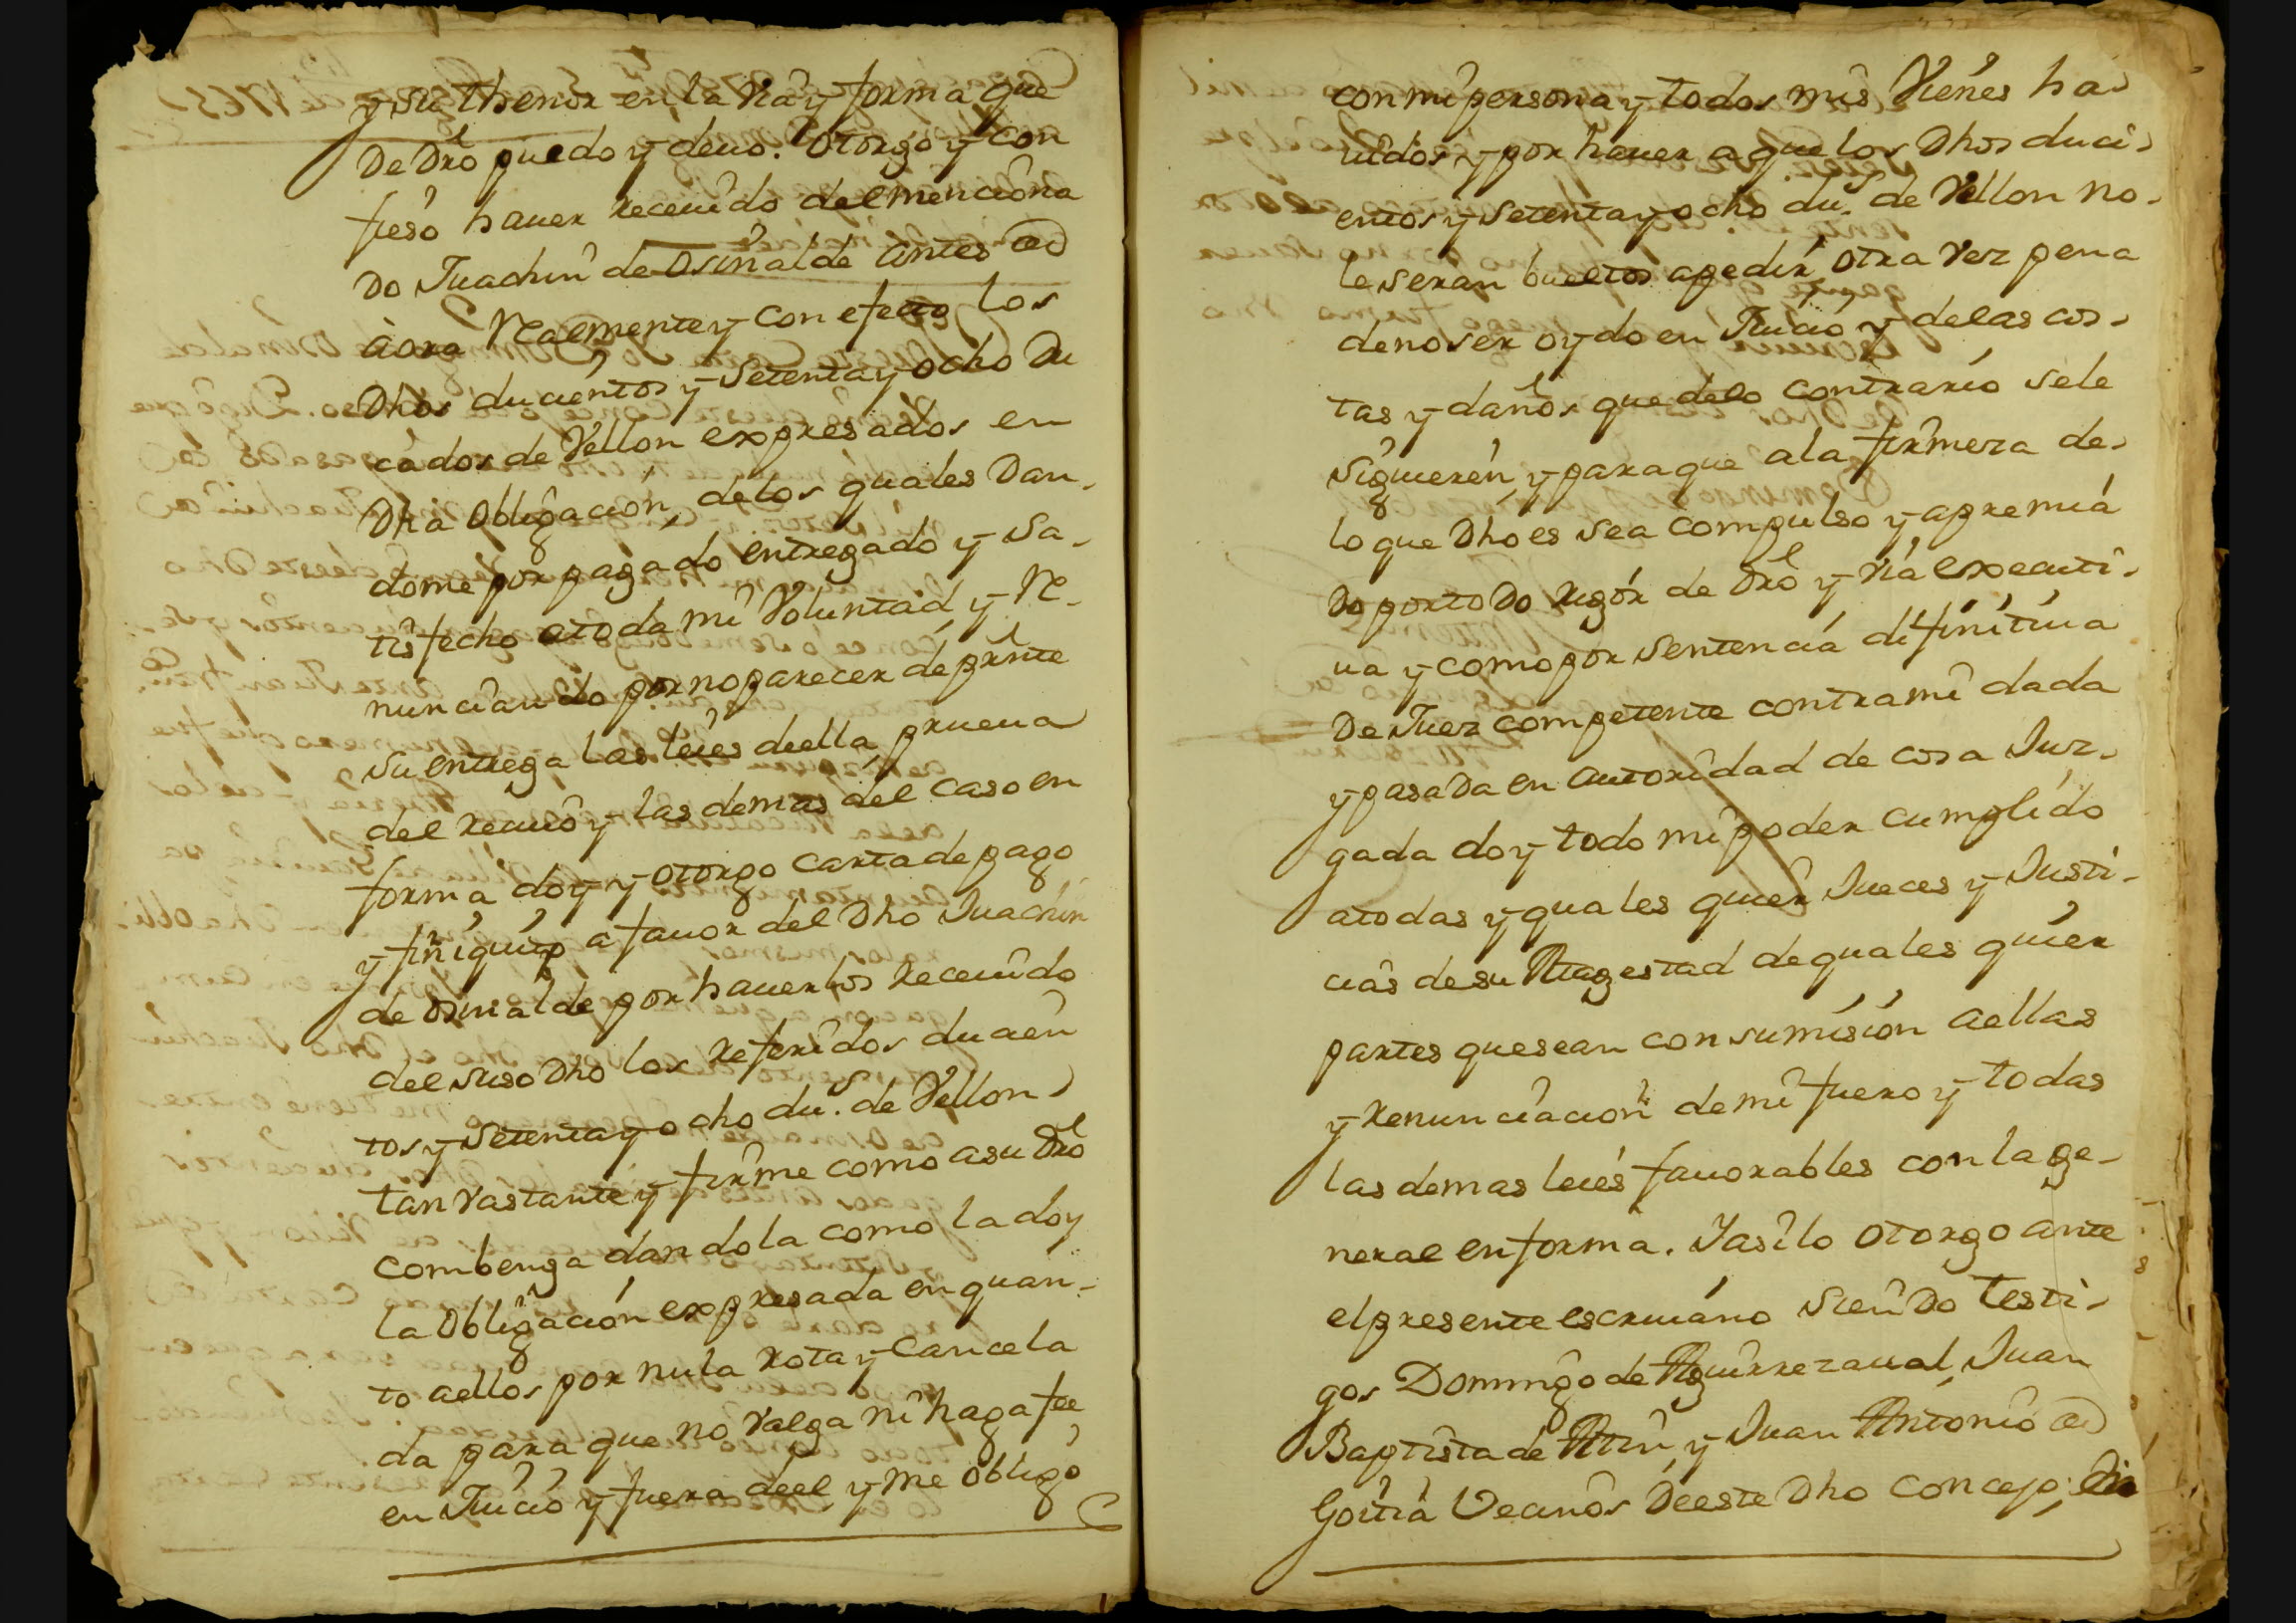 y su thenor en la via y forma que
De Dro puedo y devo. Otorgo y con
fieso haver recevido del menciona
Do Juachin de Osinalde antes de
àora Realmente y con efecto los
Dhos ducientos y Setenta y ocho Du
cados de Vellon expresados en
Dha Obligacion, de los quales Dan-
dome por pagado entregado y sa-
tisfecho a toda mi Voluntad, y Re-
nunciando por no parecer de prnte
su entrega las leies de ella, prueva
del recivo y las demas del caso en
forma doy y otorgo carta de pago
y finiquito a favor del Dho Juachin
de Osinalde por haverlos recevido
del suso Dho los referidos ducien
tos y Setenta y ocho dus. de Vellon
tan vastante y firme como a su Dro
combenga dandola como la doy
la Obligacion expresada en quan-
to a ellos por nula rota y Cancela
da para que no valga ni haga fee
en Juicio y fuera de el, y me obligo
con mi persona y todos mis Vienes ha-
vidos, y por haver a que los Dhos duci-
entos y Setenta y ocho dus. de Vellon no-
le seran bueltos a pedir otra vez pena
de no ser oydo en Juicio, y de las cos-
tas y daños que de lo contrario se le
siguieren, y para que a la firmeza de-
lo que Dho es sea compulso y apremia
Do por toDo rigor de Dro y via executi-
va y como por Sentencia difinitiva
De Juez competente contra mi dada
y pasaDa en autoridad de cosa Juz-
gada doy todo mi poder cumplido
a todas y quales quier Jueces y Justi-
cias de su Magestad de quales quier
partes que sean con sumision a ellas
y renunciacion de mi fuero y todas
las demas leies favorables con la ge-
neral en forma. Y asi lo otorgo ante
el presente escrivano sienDo testi-
gos Domingo de Aguirrezaval, Juan
Baptista de Atin, y Juan Antonio de
Goitia Vecinos De este Dho Concejo,